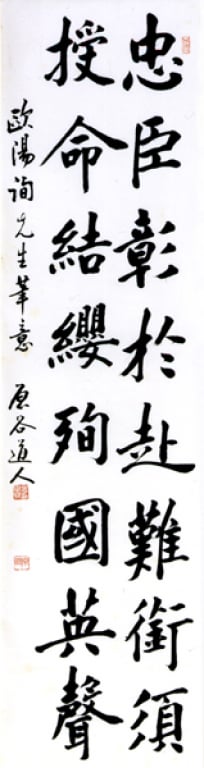 忠臣彰於赴難銜須
授命結纓殉國英聲
歐陽詢先生筆意 原谷道人